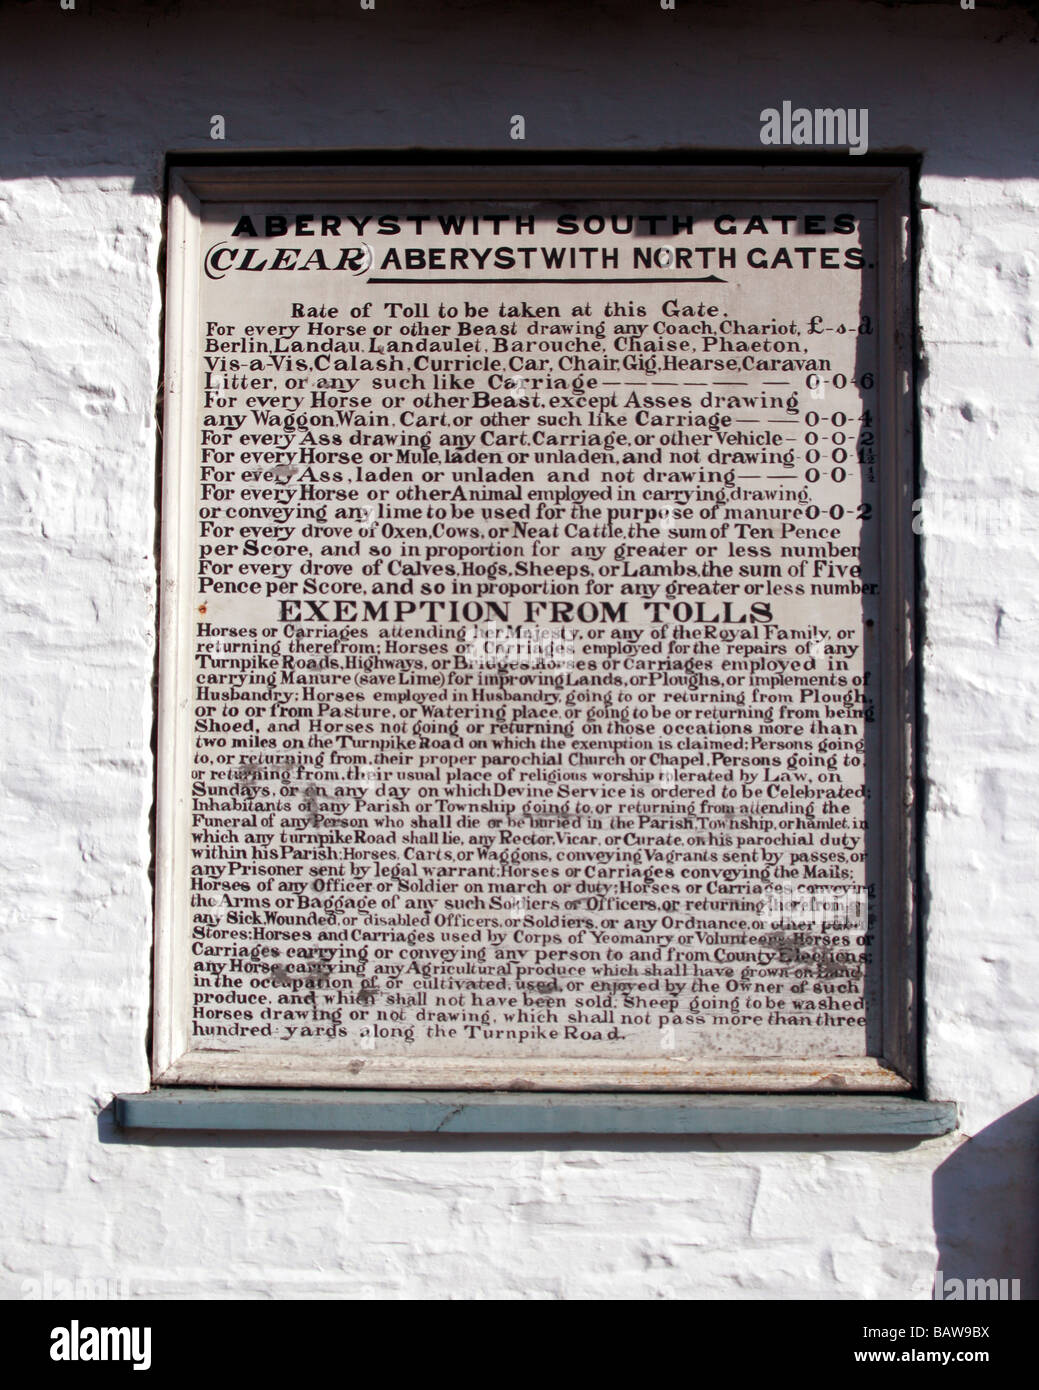 ABERYSTWITH SOUTH GATES
(CLEAR) ABERYSTWITH NORTH GATES.
Rate of Toll to be taken at this Gate.
For every Horse or other Beast drawing any Coach, Chariot, £-s-d
Berlin, Landau, Landaulet, Barouche, Chaise, Phaeton,
Vis-a-Vis, Calash, Curricle, Car, Chair, Gig, Hearse, Caravan
Litter, or any such like Carriage — — — — — — 0-0-6
For every Horse or other Beast, except Asses drawing
any Waggon, Wain, Cart, or other such like Carriage — — 0-0-4
For every Ass drawing any Cart, Carriage, or other Vehicle – 0-0-2
For every Horse or Mule, laden or unladen, and not drawing - 0-0-1½
For every Ass, laden or unladen and not drawing — — 0-0-½
For every Horse or other Animal employed in carrying, drawing,
or conveying any lime to be used for the purpose of manure 0-0-2
For every drove of Oxen, Cows, or Neat Cattle, the sum of Ten Pence
per Score, and so in proportion for any greater or less number
For every drove of Calves, Hogs, Sheeps, or Lambs, the sum of Five
Pence per Score, and so in proportion for any greater or less number.
EXEMPTION FROM TOLLS
Horses or Carriages attending her Majesty, or any of the Royal Family, or
returning therefrom; Horses or Carriages, employed for the repairs of any
Turnpike Roads, Highways, or Bridges. Horses or Carriages employed in
carrying Manure (save Lime) for improving Lands, or Ploughs, or implements of
Husbandry; Horses employed in Husbandry, going to or returning from Plough,
or to or from Pasture, or Watering place, or going to be or returning from being
Shoed, and Horses not going or returning on those occations more than
two miles on the Turnpike Road on which the exemption is claimed; Persons going
to, or returning from, their proper parochial Church or Chapel, Persons going to,
or returning from, their usual place of religious worship tolerated by Law, on
Sundays, or on any day on which Devine Service is ordered to be Celebrated;
Inhabitants of any Parish or Township going to, or returning from attending the
Funeral of any Person who shall die or be buried in the Parish, Township, or hamlet, in
which any turnpike Road shall lie, any Rector, Vicar, or Curate, on his parochial duty
within his Parish; Horses, Carts, or Waggons, conveying Vagrants sent by passes, or
any Prisoner sent by legal warrant; Horses or Carriages conveying the Mails;
Horses of any Officer or Soldier on march or duty; Horses or Carriages conveying
the Arms or Baggage of any such Soldiers or Officers, or returning therefrom,
any Sick, Wounded, or disabled Officers, or Soldiers, or any Ordnance, or other public
Stores; Horses and Carriages used by Corps of Yeomanry or Volunteers; Horses or
Carriages carrying or conveying any person to and from County Elections;
any Horse carrying any Agricultural produce which shall have grown on Land
in the occupation of, or cultivated, used, or enjoyed by the Owner of such
produce, and which shall not have been sold; Sheep going to be washed;
Horses drawing or not drawing, which shall not pass more than three
hundred yards along the Turnpike Road.
a a alamy
alamy
alamy
a a alamy
alamy Image ID: BAW9BX
www.alamy.com